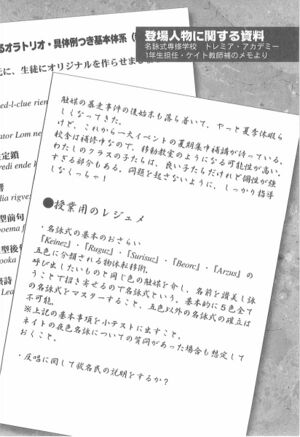 登場人物に関する資料
名詠式専修学校 トレミア・アカデミー
1年生担任・ケイト教師補のメモより
るオラトリオ・具体例つき基本体系（
元に、生徒にオリジナルを作らせまる
触媒の暴走事件の後始末も落ち着いて、やっと夏季休暇ら
しくなってきた。
けど、これから一大イベントの夏期集中補講が待っている。
校舎は補修中なので、移動教室のようになる可能性が高い。
わたしのクラスの子たちは、良い子たちだけれど個性が強
すぎる部分もある。問題を起こさないように、しっかり指導
しなくっちゃ！
●授業用のレジュメ
・名詠式の基本のおさらい
『Keinez』・『Ruguz』・『Surisuz』・『Beorc』・『Arzus』の
五色に分類される物体転移術。
呼び出したいものと同じ色の触媒を介し、名前を讃美し詠
うことで招き寄せるので名詠式という。基本的に五色全て
の名詠式をマスターすること、五色以外の名詠式の確立は
不可能。
※上記の基本事項を小テストに出すこと。
ネイトの夜色名詠についての質問があった場合も想定して
おくこと。
・反唱に関して敬名民の説明をするか？
ed-l-clue rien
ator Lom ne
定鎖
redi ende i
譜
lia rigve
型前句
poema
型後句
ooka
詩
Lea